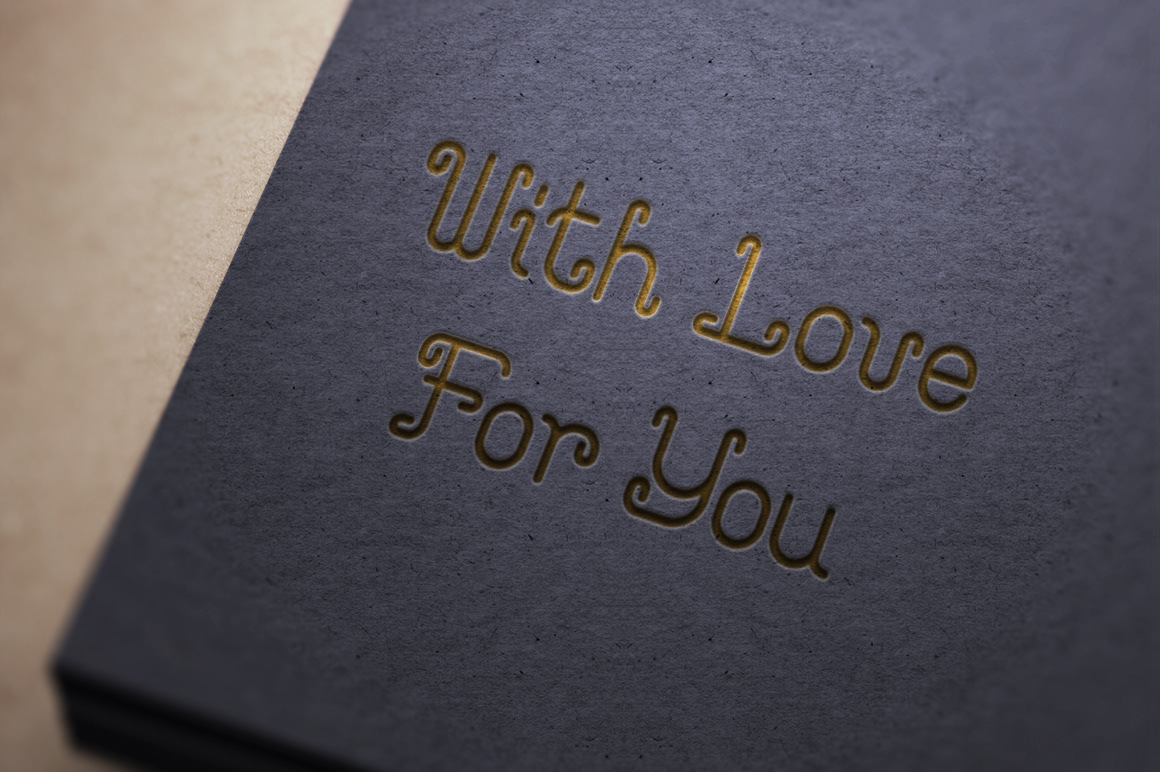 With Love
For You